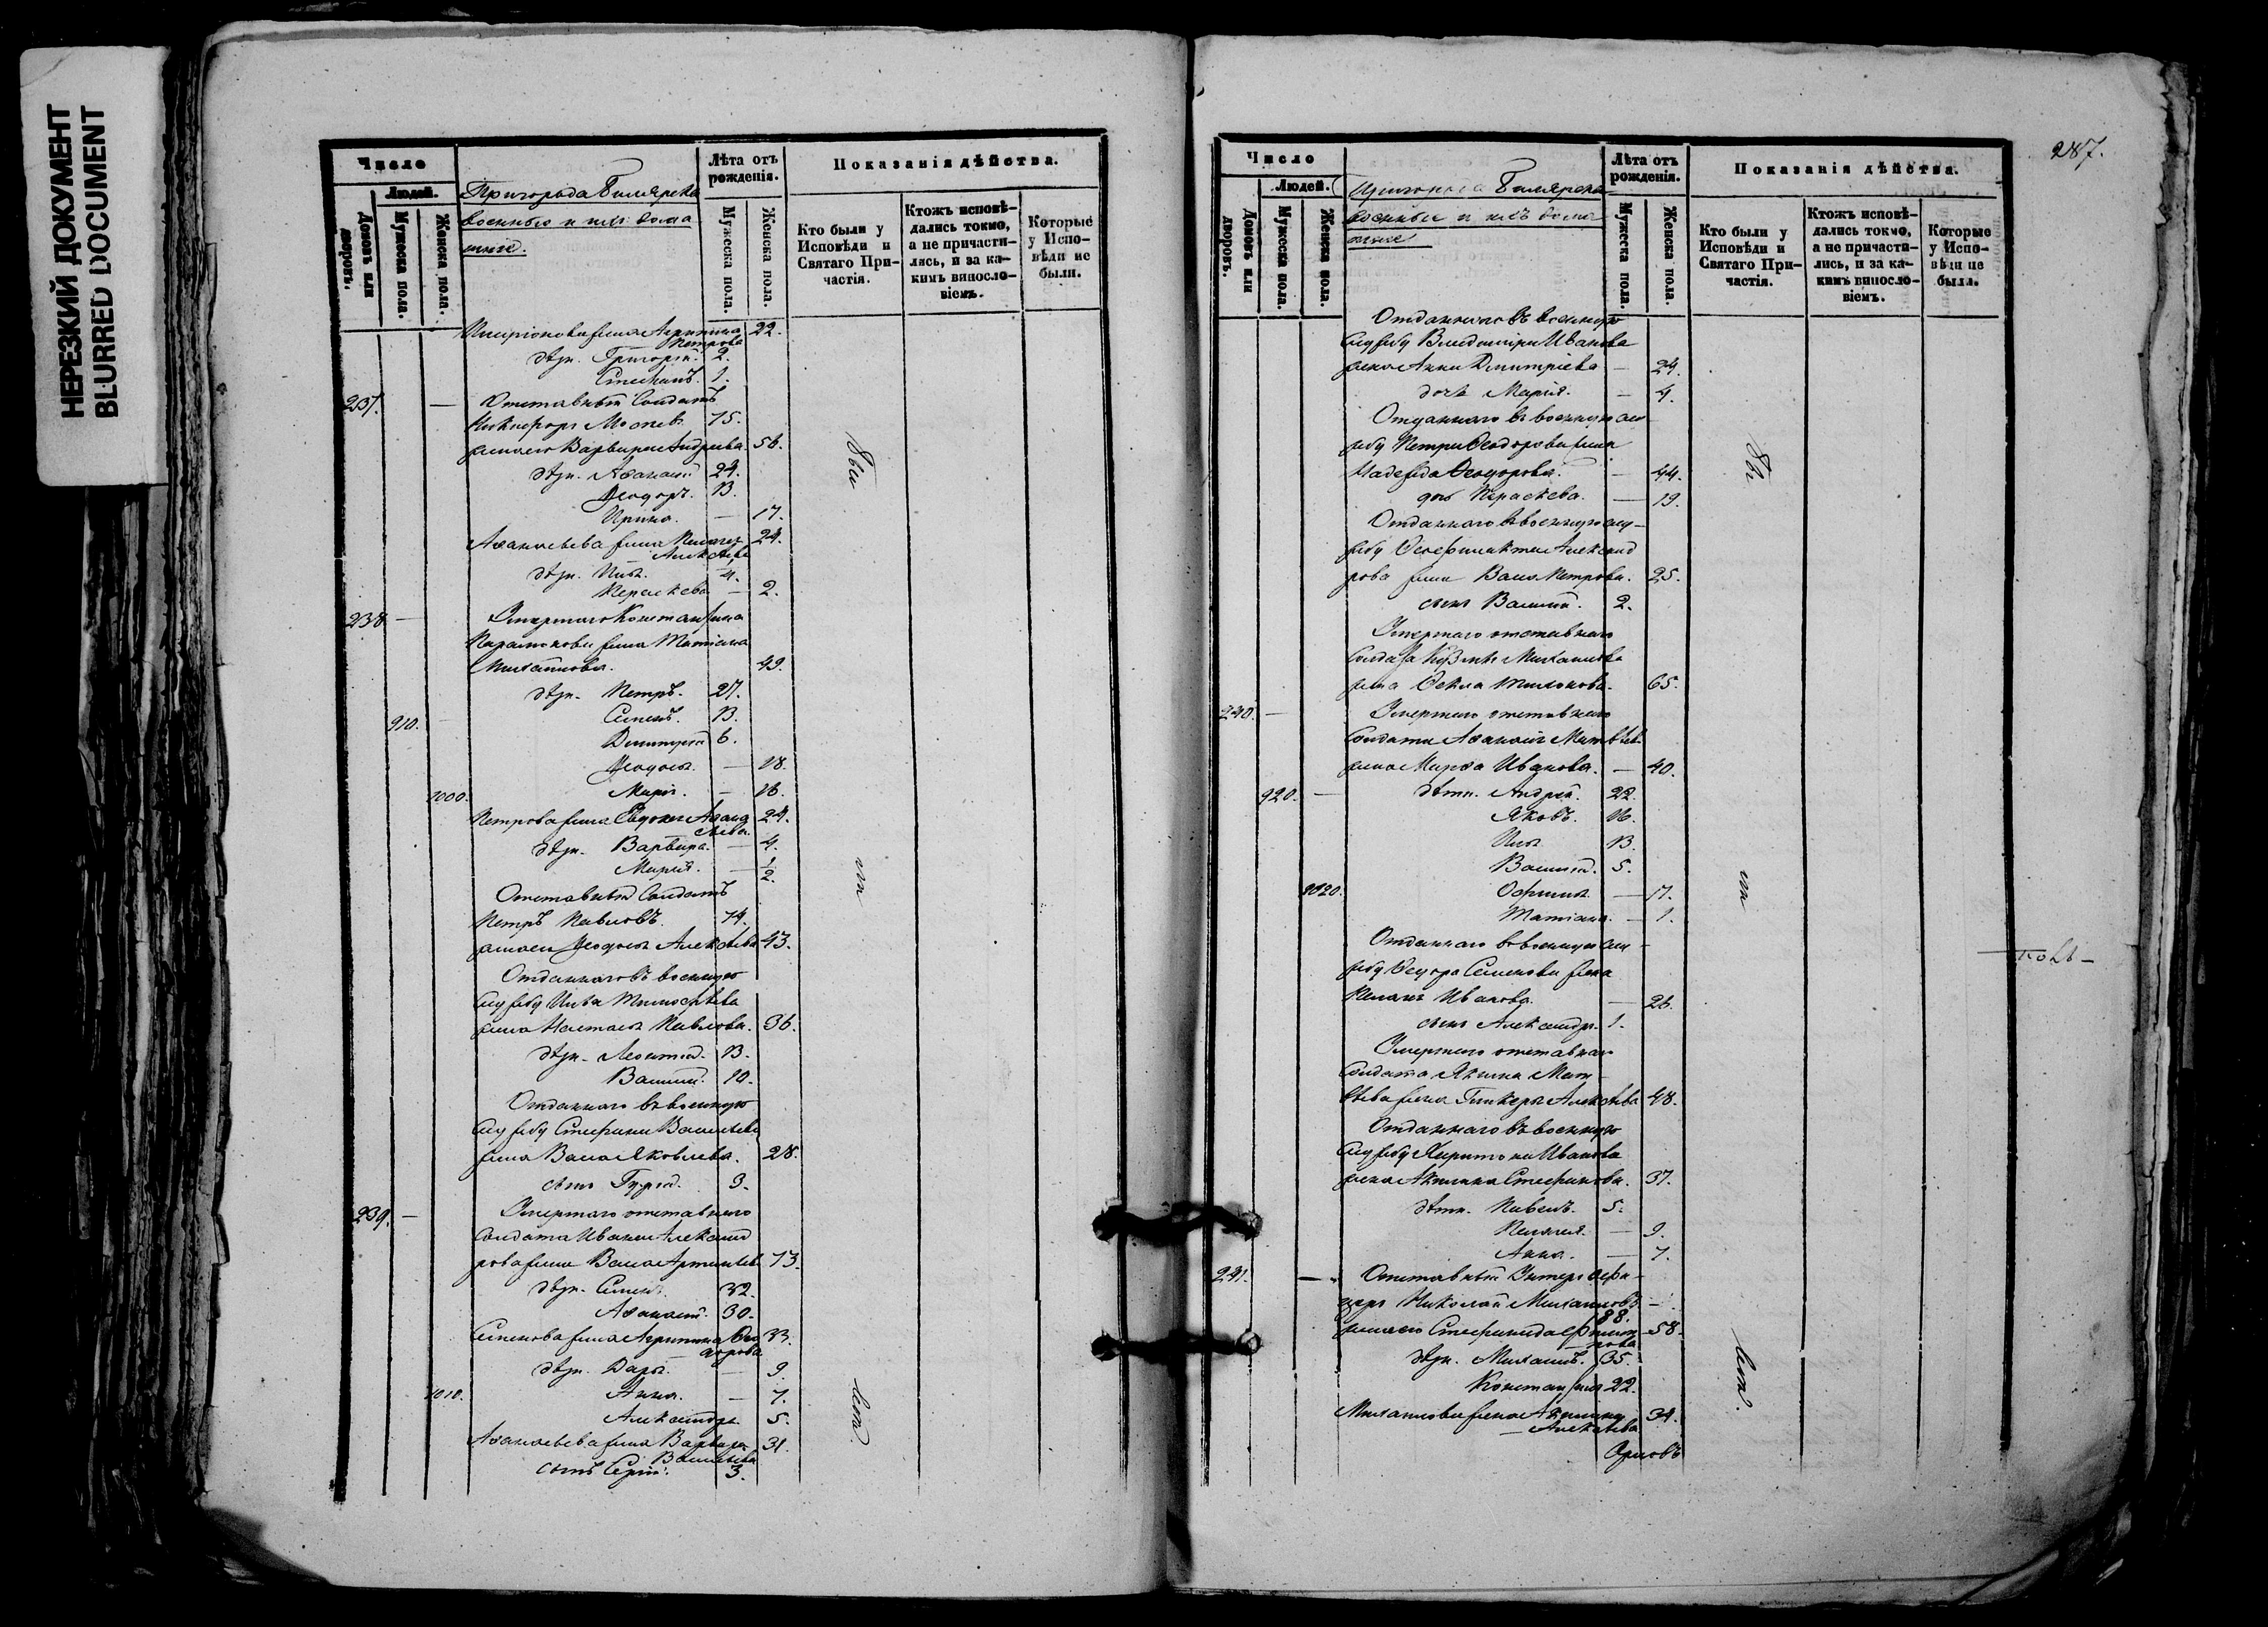 НЕРЕЗКИЙ ДОКУМЕНТ
BLURRED DOCUMENT
Число
Людей.
Домовъ или дворовъ.
Мужеска пола.
Женска пола.
Пригорода Билярска
военные и ихъ дома
шніе.
Лѣта отъ рожденія.
Мужеска пола.
Женска пола.
Показанія дѣйства.
Кто были у Исповѣди и Святаго Причастія.
Ктожъ исповѣдались токмо, а не причастились, и за какимъ винословіемъ.
Которые у Исповѣди не были.
жена Агрипина 22.
Петрова
дѣти. Григорій. 2.
Стефанъ. 1.
237. — Отставный Солдатъ
Никифоръ 75.
жена его Варвара Андреева. 56.
дѣти. Аѳанасій 24.
Ѳеодоръ. 13.
Ирина. — 17.
Аѳанасьева жена Пелагея 24.
Алексѣева
дѣти. Илья. 4.
Параскева — 2.
238 — Умершаго Константина
Парамонова жена Татіана
Михайлова. 49.
дѣти. Петръ. 27.
910. Симеонъ. 13.
Димитрій 6.
Ѳеодосья. — 18.
1000. Марія. — 16.
Петрова жена Евдокія Аѳанасьева 24.
дѣти. Варвара. — 4.
Марія. — 1/2.
Отставный Солдатъ
Петръ Павловъ. 74.
жена его Ѳеодосья Алексѣева 43.
Отданнаго въ военную
службу Ильи Тимоѳеева
жена Настасья Павлова. 36.
дѣти. Леонтій. 13.
Василій. 10.
Отданнаго въ военную
службу Стефана Васильева
жена Васса Яковлева. 28.
сынъ Гурій. 3.
239. — Умершаго отставнаго
Солдата Ивана Александ
рова жена Васса Артемьева 73.
дѣти. Симеонъ. 32.
Аѳанасій. 30.
Симеонова жена Агрипина Ѳео 33.
дорова
дѣти. Дарья. — 9.
1010. Анна. — 7.
Александра 5.
Аѳанасьева жена Варвара 31.
Васильева
сынъ Сергій. 3.
бы
ли
287.
Число
Людей.
Домовъ или дворовъ.
Мужеска пола.
Женска пола.
Пригорода Билярска
военные и ихъ дома
шніе
Лѣта отъ рожденія.
Мужеска пола.
Женска пола.
Показанія дѣйства.
Кто были у Исповѣди и Святаго Причастія.
Ктожъ исповѣдались токмо, а не причастились, и за какимъ винословіемъ.
Которые у Исповѣди не были.
Отданнаго въ военную
службу Владиміра Иванова
жена Анна Димитріева — 24.
дочь Марія. — 4.
Отданнаго въ военную слу
жбу Петра Ѳеодорова жена
Надежда Ѳеодорова. — 44.
дочь Параскева. — 19.
Отданнаго въ военную слу-
жбу Ѳеофилакта Александ
рова жена Васса Петрова. 25.
сынъ Василій. 2.
Умершаго отставнаго
Солдата Козмы Михайлова
жена Ѳекла 65.
240. — Умершаго отставнаго
Солдата Аѳанасія Матвѣева
жена Марѳа Иванова. — 40.
920. — дѣти. Андрей. 22.
Яковъ. 16.
Илья 13.
Василій. 5.
1020. — 17.
Татіана. — 1.
Отданнаго въ военную слу-
жбу Ѳедора Семенова жена
Пелагея Иванова. — 26.
сынъ Александръ. 1.
Умершаго отставнаго
Солдата Якима Мат
вѣева жена Гликерья Алексѣева 48.
Отданнаго въ военную
службу Харитона Иванова
жена Акилина Стефанова. 37.
дѣти. Павелъ. 5.
Пелагея. — 9.
Анна. — 7.
241. — Отставный Унтеръ офи-
церъ Николай Михайловъ —
88.
жена его Стефанида 58.
дѣти. Михаилъ. 35.
Константинъ 22.
Михайлова жена Акилина 34.
Алексѣева
Орловъ
бы
ли